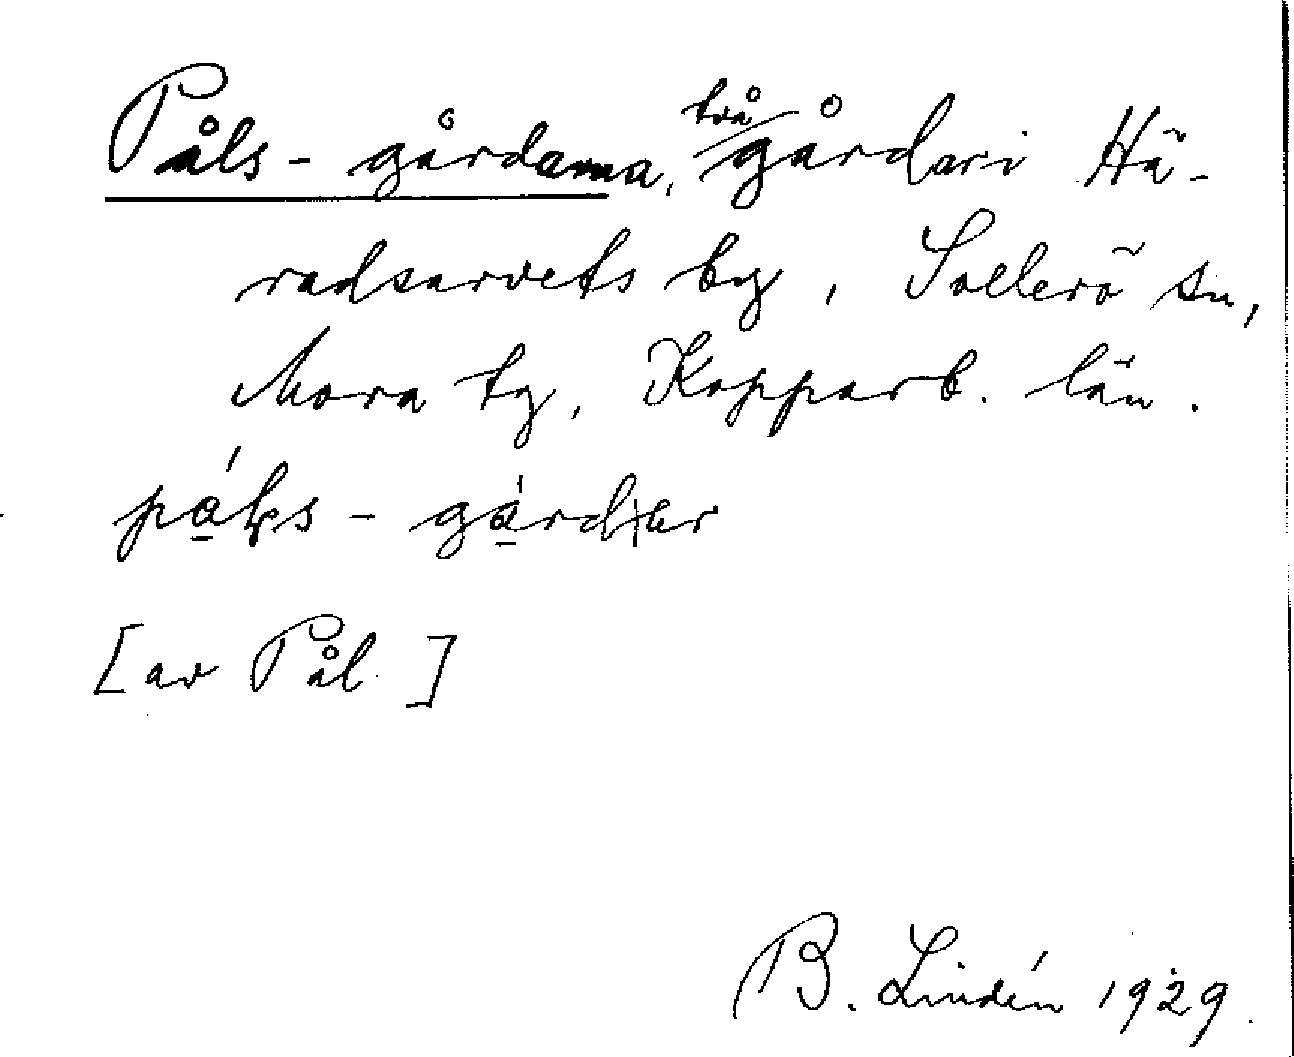 Påls-gårdarna, två gårdar i Hä-
radsarvets by, Sollerö sn,
Mora tg, Kopparb. län.
[av Pål]
B. Lindén 1929.